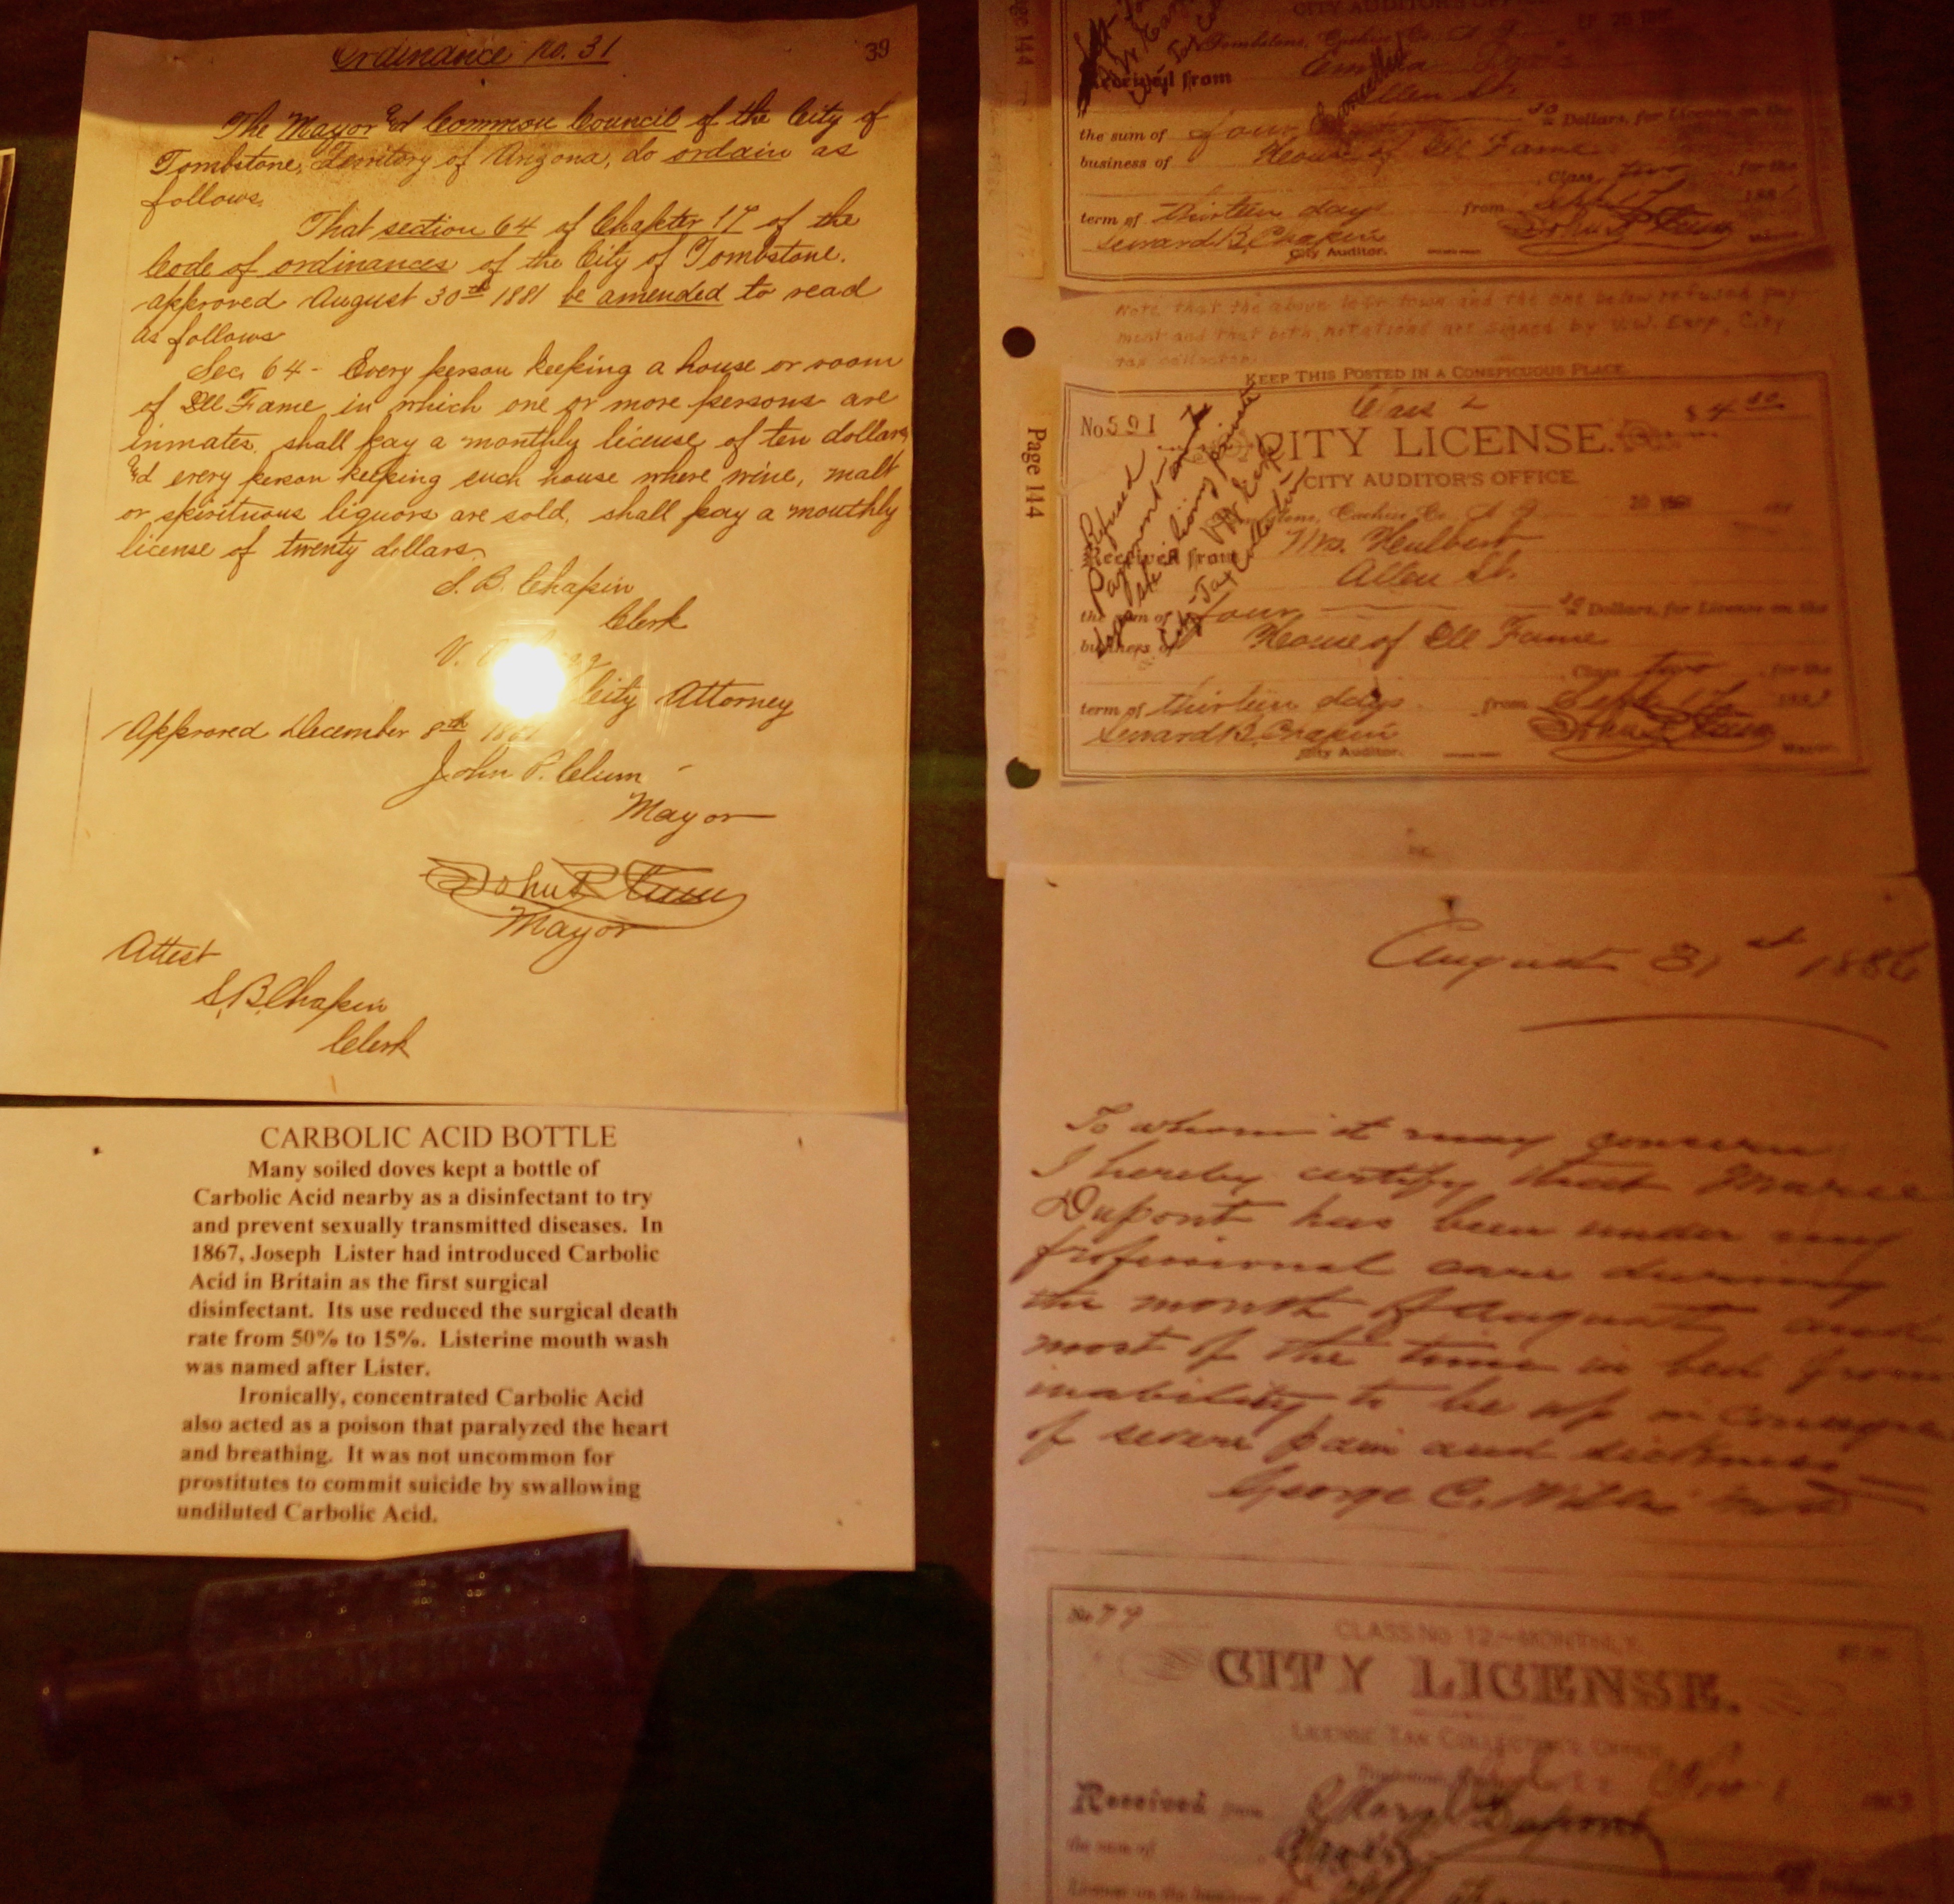 Ordinance No. 31
39
The Mayor and Common Council of the City of
Tombstone, Territory of Arizona, do ordain as
follows.
That section 64 of Chapter 17 of the
Code of ordinances of the City of Tombstone.
approved August 30th 1881 be amended to read
as follows
Sec. 64 - Every person keeping a house or room
of Ill Fame in which one or more persons are
inmates, shall pay a monthly license of ten dollars,
and every person keeping such house where wine, malt
or spirituous liquors are sold, shall pay a monthly
license of twenty dollars
S. B. Chapin
Clerk
V.
City Attorney
Approved December 8th
John P. Clum
Mayor
John P Clum
Mayor
Attest
S. B. Chapin
Clerk
CARBOLIC ACID BOTTLE
Many soiled doves kept a bottle of
Carbolic Acid nearby as a disinfectant to try
and prevent sexually transmitted diseases. In
1867, Joseph Lister had introduced Carbolic
Acid in Britain as the first surgical
disinfectant. Its use reduced the surgical death
rate from 50% to 15%. Listerine mouth wash
was named after Lister.
Ironically, concentrated Carbolic Acid
also acted as a poison that paralyzed the heart
and breathing. It was not uncommon for
prostitutes to commit suicide by swallowing
undiluted Carbolic Acid.
Page 144
CITY AUDITOR'S OFFICE
Tombstone, Cochise Co. A. T.
Received from
Allen St.
Cancelled
the sum of Four Dollars, for License on the
business of House of Ill Fame
Class two for the
term of thirteen days from Sept. 17 188
Seward B. Chapin John P Clum
City Auditor. Mayor.
Note that the above left town and the one below refused pay-
ment and that both notations are signed by V.W. Earp, City
tax collector.
KEEP THIS POSTED IN A CONSPICUOUS PLACE.
Page 144
No 591
Class 2
$ 4 50
CITY LICENSE.
CITY AUDITOR'S OFFICE.
Tombstone, Cochise Co. A. T.
Refused
Payment on
living private
V W Earp
City Tax Collector
Received from Mrs. Heulbert
Allen St.
the sum of Four 50 Dollars, for License on the
business of House of Ill Fame
Class two for the
term of thirteen days from Sept. 17
Seward B. Chapin John P Clum
City Auditor. Mayor.
August 31st 1886
To whom it may concern
I hereby certify that Marie
Dupont has been under my
professional care during
the month of August and
most of the time in bed from
inability to be up in
of severe pain and sickness
George C. Willis M D
No 79
CLASS No 12.—MONTHLY.
CITY LICENSE.
LICENSE TAX COLLECTOR'S OFFICE
Received from Dupont
the sum of
License on the business